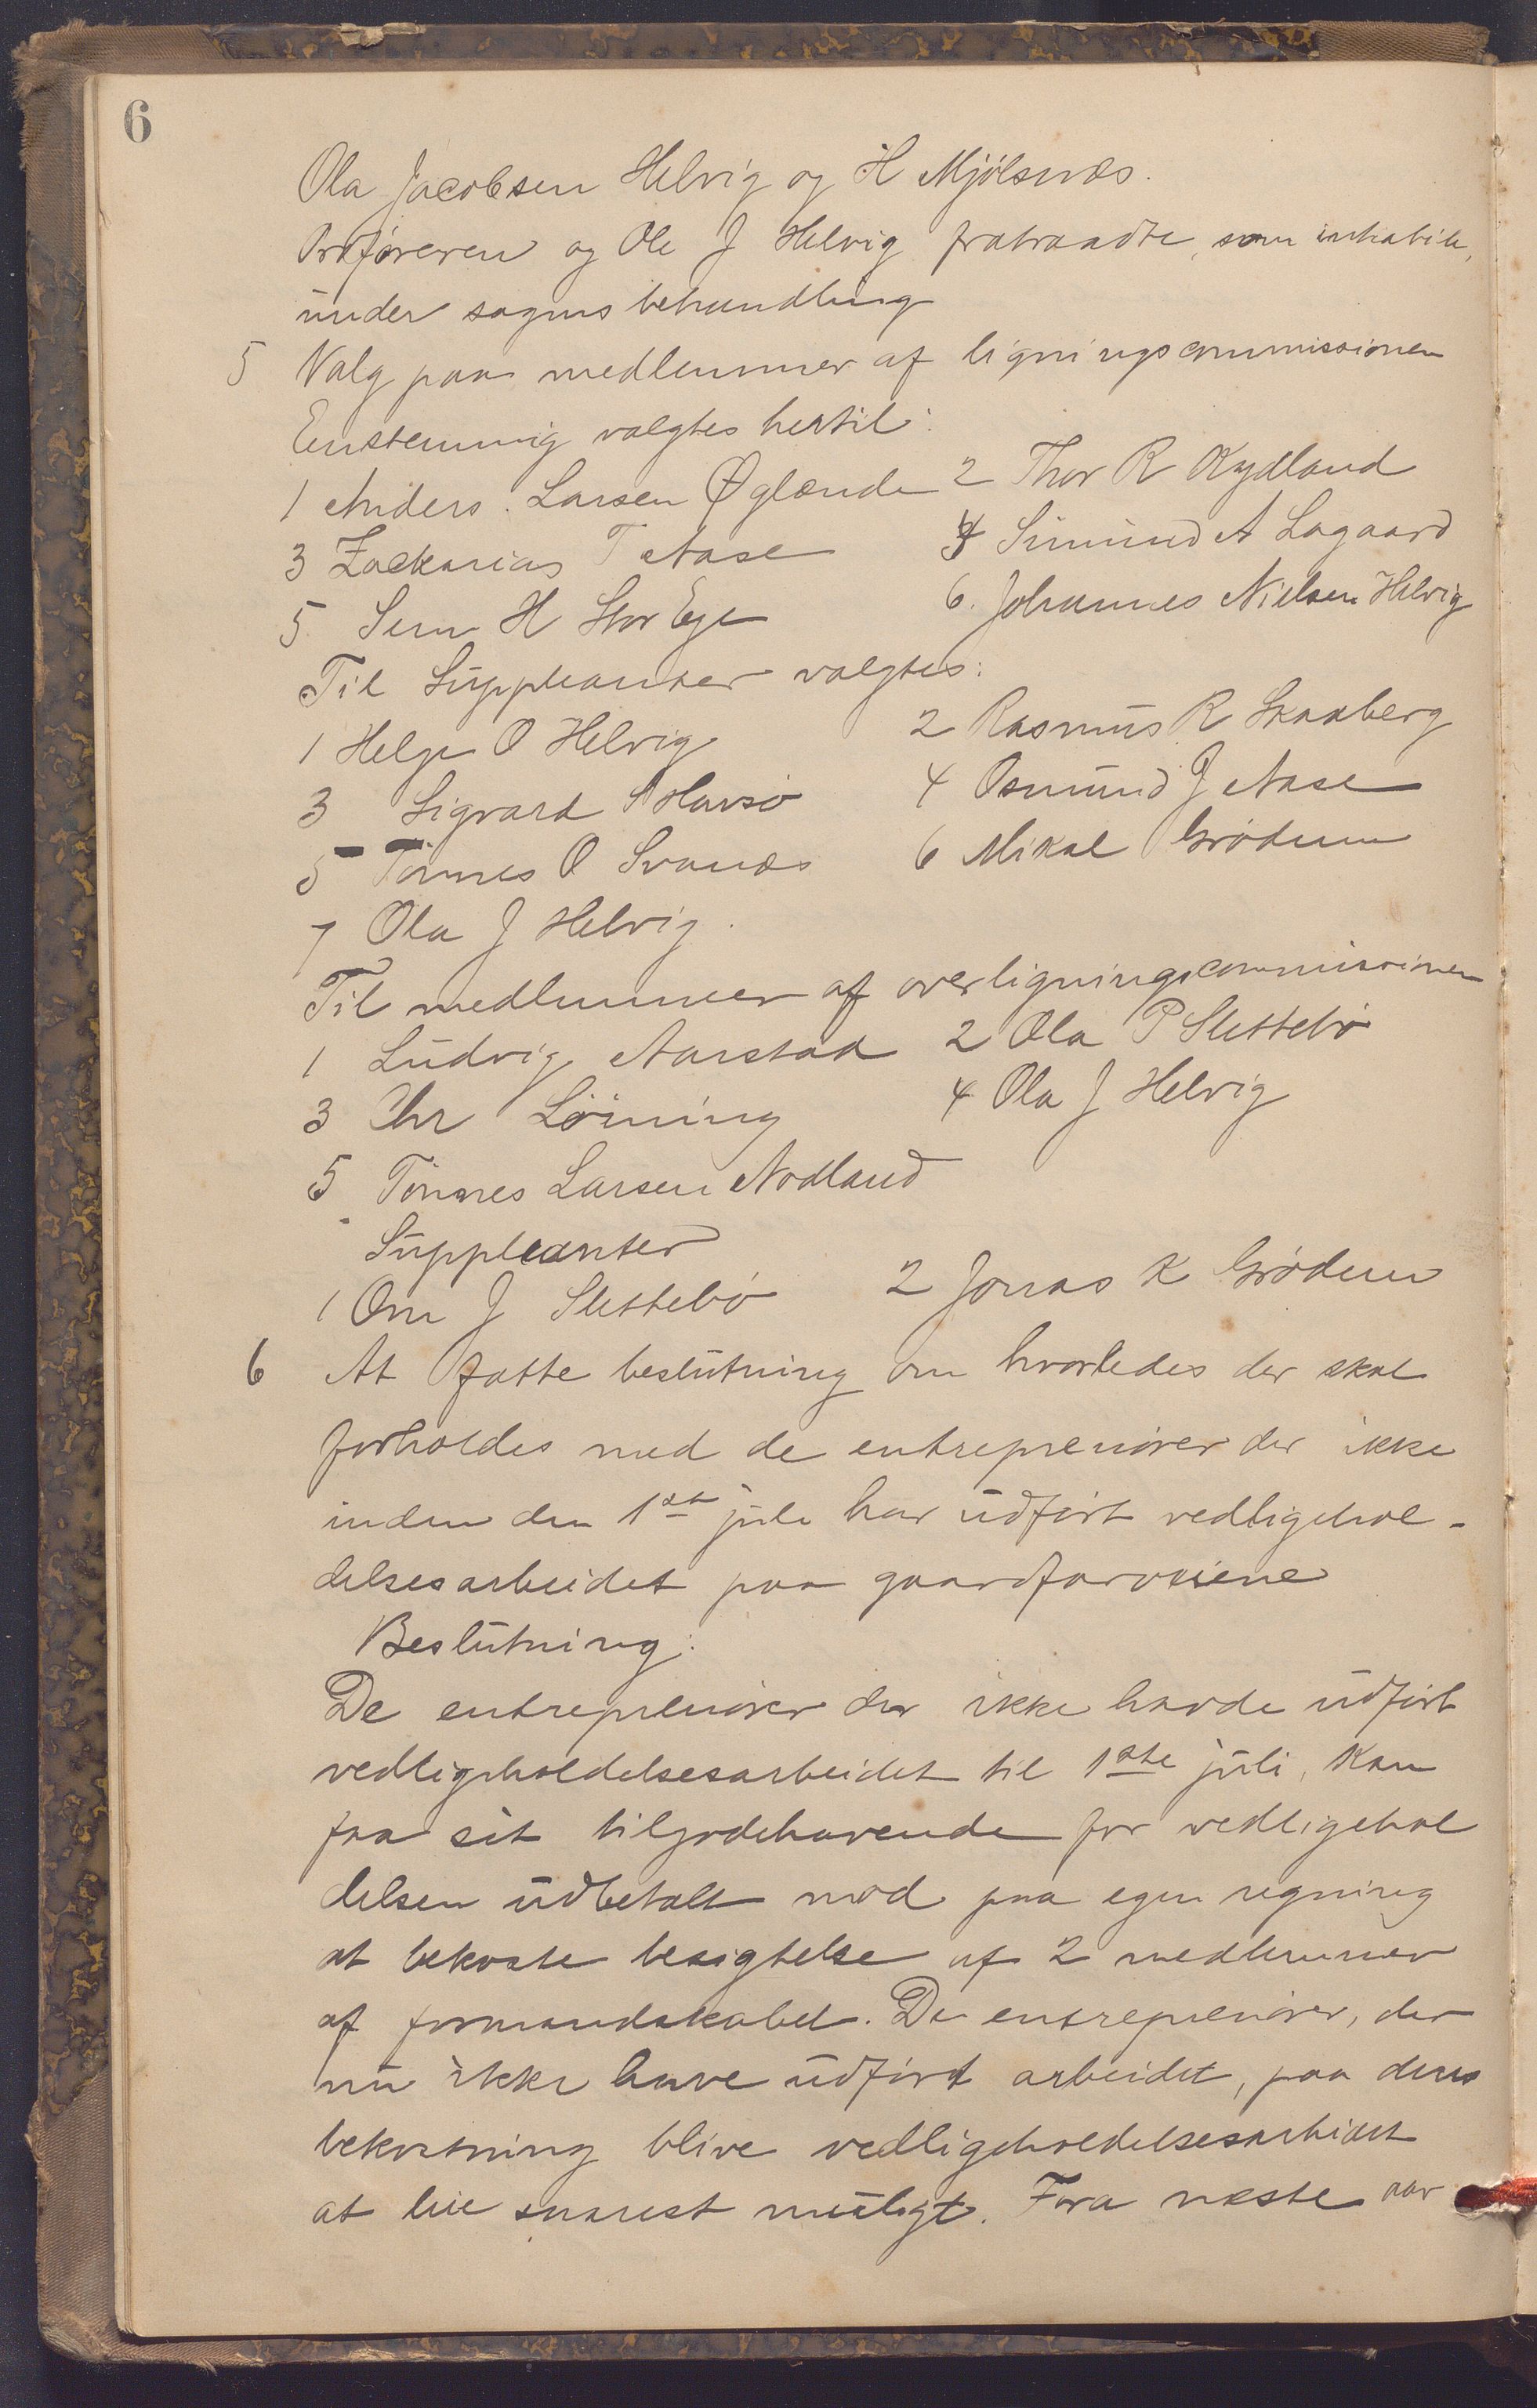 6
Ola Jacobsen Helvig og H Mjölsnæs.
Ordføreren og Ole J Helvig fratraadte, som inhabile,
under sagens behandling
5 Valg paa medlemmer af ligningscommissionen
Enstemmig valgtes hertil:
1 Anders. Larsen Øglænde 2 Thor R Rydland
3 Zackarias T Aase 4 Simund A Lagaard
5 Sem H Stor Eje 6. Johannes Nielsen Helvig
Til Suppleanter valgtes:
1 Helge O Helvig 2 Rasmus R Skaaberg
3 Sigvard S Havsö 4 Osmund J Aase
5 Tönnes O Svanæs 6 Mikal Grödem
7 Ola J Helvig.
Til medlemmer af overligningscommissionen
1 Ludvig Aarstad 2 Ola P Slettebö
3 Chr Löining 4 Ola J Helvig
5 Tönnes Larsen Nodland
Suppleanter
1 Om J Slettebö 2 Jonas K Grödem
6 At fatte beslutning om hvorledes der skal
forholdes med de entreprenörer der ikke
inden den 1st juli har udfört vedligehol-
delsesarbeidet paa gaardfarveiene
Beslutning:
De entreprenörer der ikke havde udfört
vedligeholdelsesarbeidet til 1ste juli, kan
faa sit tilgodehavende for vedligehol
delsen udbetalt mod paa egen regning
at bekoste besigtelse af 2 medlemmer
af formandskabet. De entreprenörer, der
nu ikke have udfört arbeidet, paa deres
bekostning blive vedligeholdelsesarbeidet
at leie snarest muligt. Fora næste aar